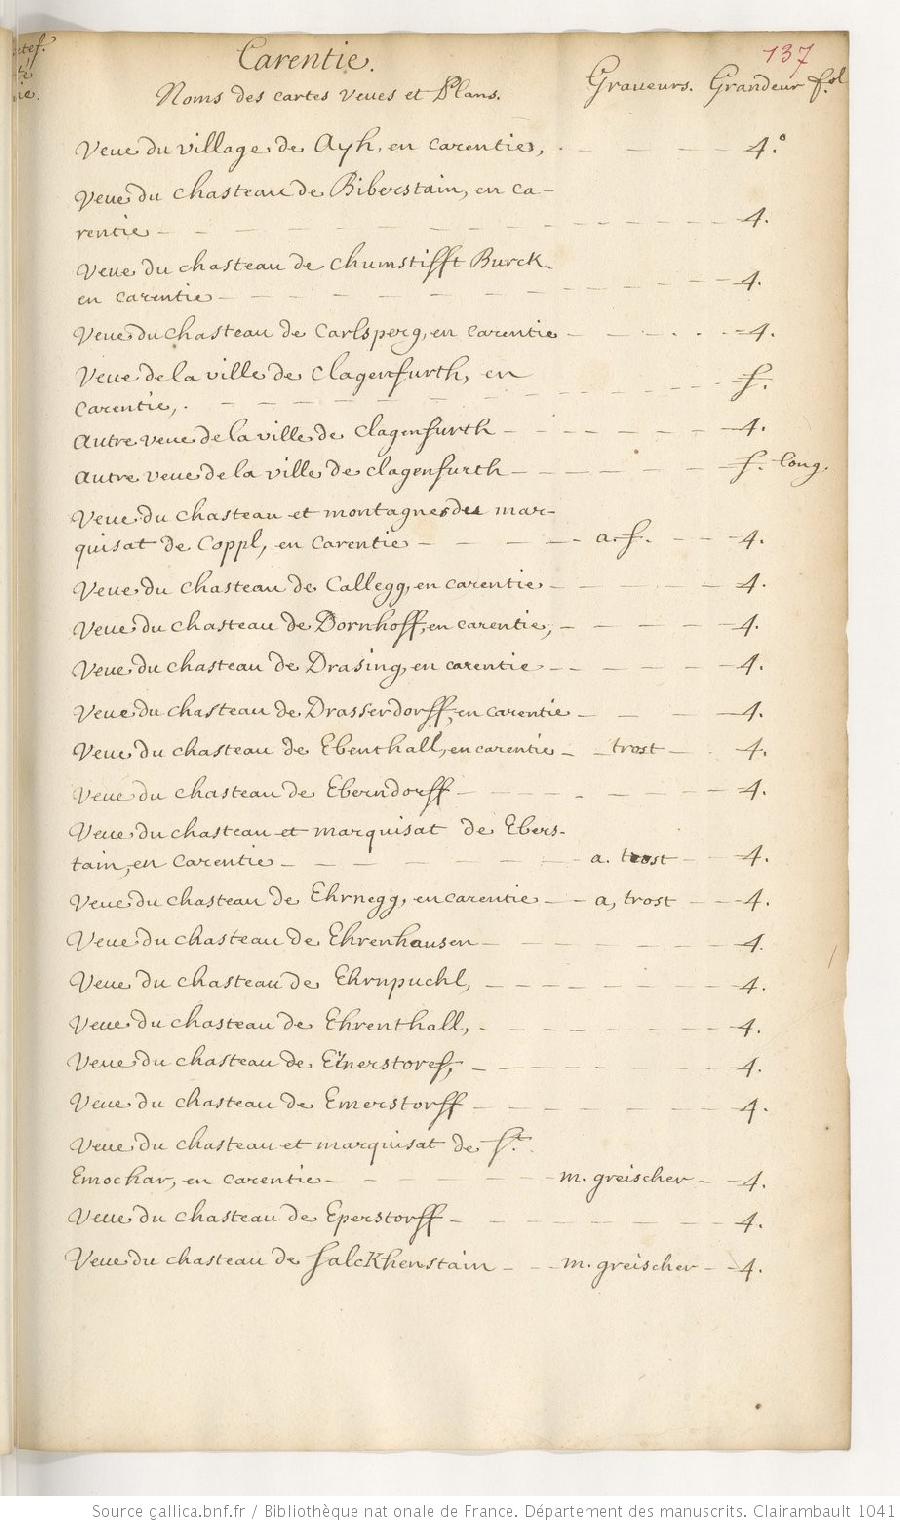 137
Carentie.
Noms des cartes veues et Plans. Graveurs. Grandeur fol
Veue du village de Ayh, en carentie, 4.º
Veue du chasteau de Biberstain, en ca-
rentie 4.
Veue du chasteau de chumstifft Burck
en carintie 4.
Veue du chasteau de Carlsperg, en carentie 4.
Veue de la ville de Clagenfurth, en
carentie, f.
Autre veue de la ville de Clagenfurth 4.
Autre veue de la ville de clagenfurth f. long.
Veue du chasteau et montagnes du mar-
quisat de Coppl, en carentie a. f. 4.
Veue du chasteau de Callegg, en carentie 4.
Veue du chasteau de Dornhoff, en carentie, 4.
Veue du chasteau de Drasing, en carentie 4.
Veue du chasteau de Drasserdorff, en carentie 4.
Veue du chasteau de Ebenthall, en carentie trost 4.
Veue du chasteau de Eberndorff 4.
Veue du chasteau et marquisat de Ebers-
tain, en carentie a. trost 4.
Veue du chasteau de Ehrnegg, en carentie a, trost 4.
Veue du chasteau de Ehrenhausen 4.
Veue du chasteau de Ehrnpuchl, 4.
Veue du chasteau de Ehrenthall, 4.
Veue du chasteau de 4.
Veue du chasteau de Emerstorff 4.
Veue du chasteau et marquisat de St.
Emochar, en carentie m. greischer 4.
Veue du chasteau de Eperstorff 4.
Veue du chasteau de falckhenstain m. greischer 4.
Source gallica.bnf.fr / Bibliothèque nationale de France. Département des manuscrits. Clairambault 1041